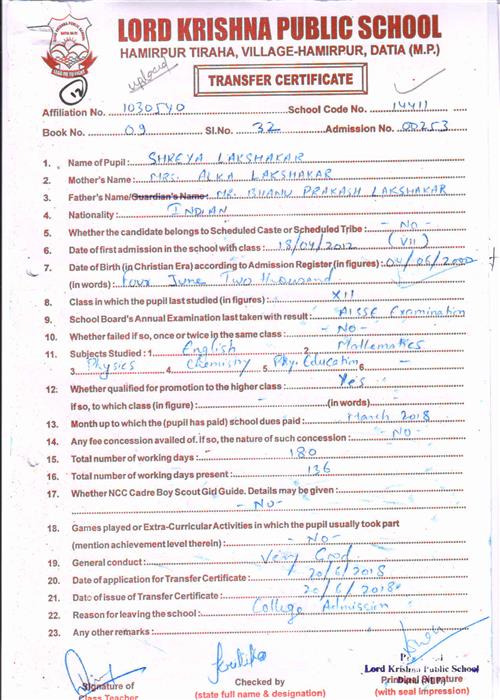 LORD KRISHNA PUBLIC SCHOOL
HAMIRPUR TIRAHA, VILLAGE-HAMIRPUR, DATIA (M.P.)
upload
12
TRANSFER CERTIFICATE
Affiliation No. 1030540 School Code No. 14411
Book No. 09 Sl.No. 32 Admission No. 00253
1. Name of Pupil: SHREYA LAKSHAKAR
2. Mother's Name: MRS. ALKA LAKSHAKAR
3. Father's Name/Guardian's Name: MR. BHANU PRAKASH LAKSHAKAR
4. Nationality: INDIAN
5. Whether the candidate belongs to Scheduled Caste or Scheduled Tribe: - No -
6. Date of first admission in the school with class: 18/04/2012 (VII)
7. Date of Birth (in Christian Era) according to Admission Register (in figures): 04/06/2000
(in words): Four June Two thousand
8. Class in which the pupil last studied (in figures): XII
9. School Board's Annual Examination last taken with result: AISSE Examination
10. Whether failed if so, once or twice in the same class: - No -
11. Subjects Studied: 1. English 2. Mathematics
3. Physics 4. Chemistry 5. Phy. Education 6. -
12. Whether qualified for promotion to the higher class: Yes
if so, to which class (in figure): - (in words) -
13. Month up to which the (pupil has paid) school dues paid: March 2018
14. Any fee concession availed of. if so, the nature of such concession: - No -
15. Total number of working days: 180
16. Total number of working days present: 136
17. Whether NCC Cadre Boy Scout Girl Guide. Details may be given:
- No -
18. Games played or Extra-Curricular Activities in which the pupil usually took part
(mention achievement level therein): - No -
19. General conduct: Very Good
20. Date of application for Transfer Certificate: 20/6/2018
21. Date of issue of Transfer Certificate: 20/6/2018
22. Reason for leaving the school: College Admission
23. Any other remarks:
Lord Krishna Public School
Signature of Class Teacher
Checked by
(state full name & designation)
(with seal Impression)